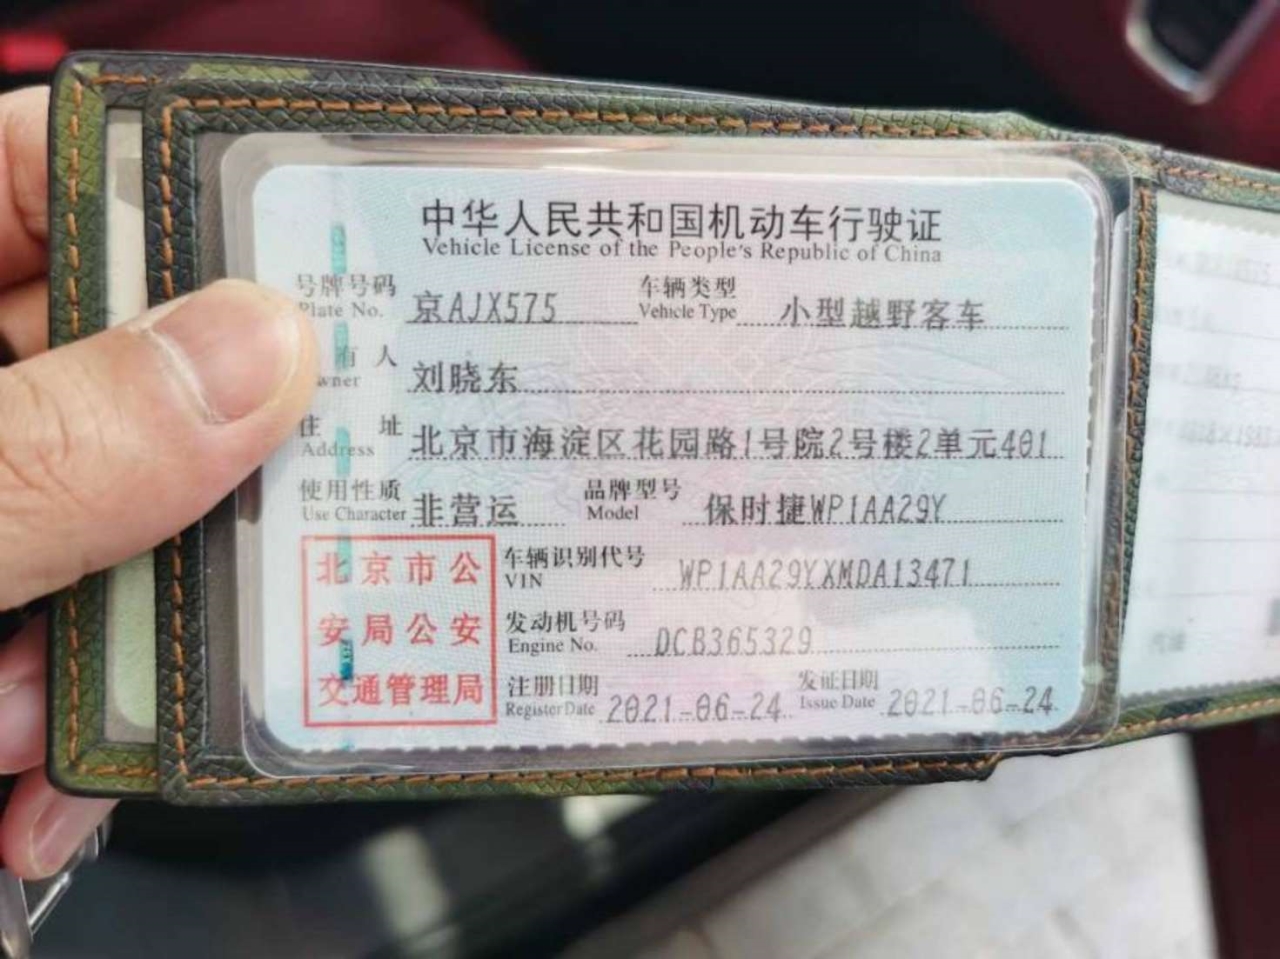 中华人民共和国机动车行驶证
Vehicle License of the People's Republic of China
号牌号码 京AJX575 车辆类型 小型越野客车
Plate No. Vehicle Type
有人 刘晓东
wner
住址 北京市海淀区花园路1号院2号楼2单元401
Address
使用性质 非营运 品牌型号 保时捷WP1AA29Y
Use Character Model
北京市公
安局公安
交通管理局
车辆识别代号 WP1AA29YXMDA13471
VIN
发动机号码 DCB365329
Engine No.
注册日期 2021-06-24 发证日期 2021-06-24
Register Date Issue Date